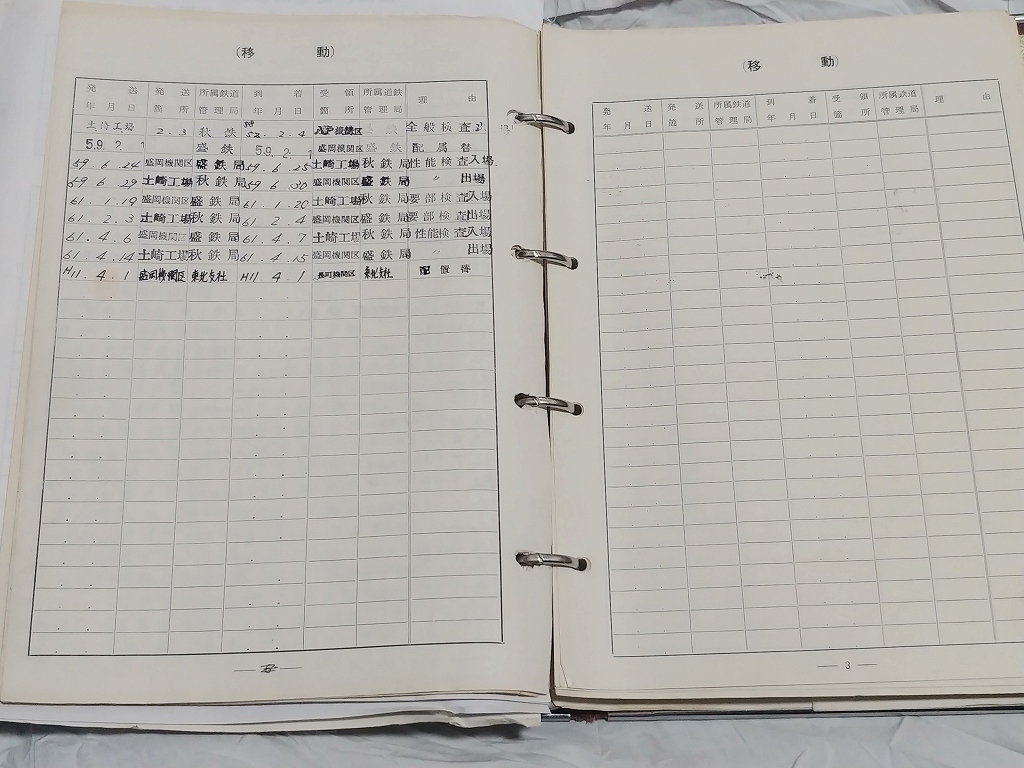 (移動)
発送 発送 所属鉄道 到着 受領 所属鉄道 理由
年月日 箇所 管理局 年月日 箇所 管理局
土崎工場 2.3 秋鉄 58.2.4 八戸機関区 盛鉄 全般検査
59.2.1 盛鉄 59.2.1 盛岡機関区 盛鉄 配属替
59.6.24 盛岡機関区 盛鉄局 59.6.25 土崎工場 秋鉄局 性能検査入場
59.6.29 土崎工場 秋鉄局 59.6.30 盛岡機関区 盛鉄局 〃 出場
61.1.19 盛岡機関区 盛鉄局 61.1.20 土崎工場 秋鉄局 要部検査入場
61.2.3 土崎工場 秋鉄局 61.2.4 盛岡機関区 盛鉄局 要部検査出場
61.4.6 盛岡機関区 盛鉄局 61.4.7 土崎工場 秋鉄局 性能検査入場
61.4.14 土崎工場 秋鉄局 61.4.15 盛岡機関区 盛鉄局 〃 出場
H11.4.1 盛岡機関区 東北支社 H11.4.1 長町機関区 東北支社 配置替
(移動)
発送 発送 所属鉄道 到着 受領 所属鉄道 理由
年月日 箇所 管理局 年月日 箇所 管理局
— 3 —